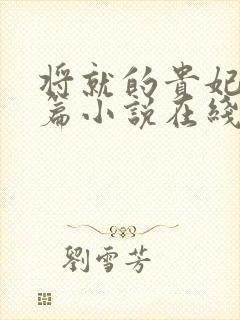 将就的貴妃
篇小说在綫
劉雪芳